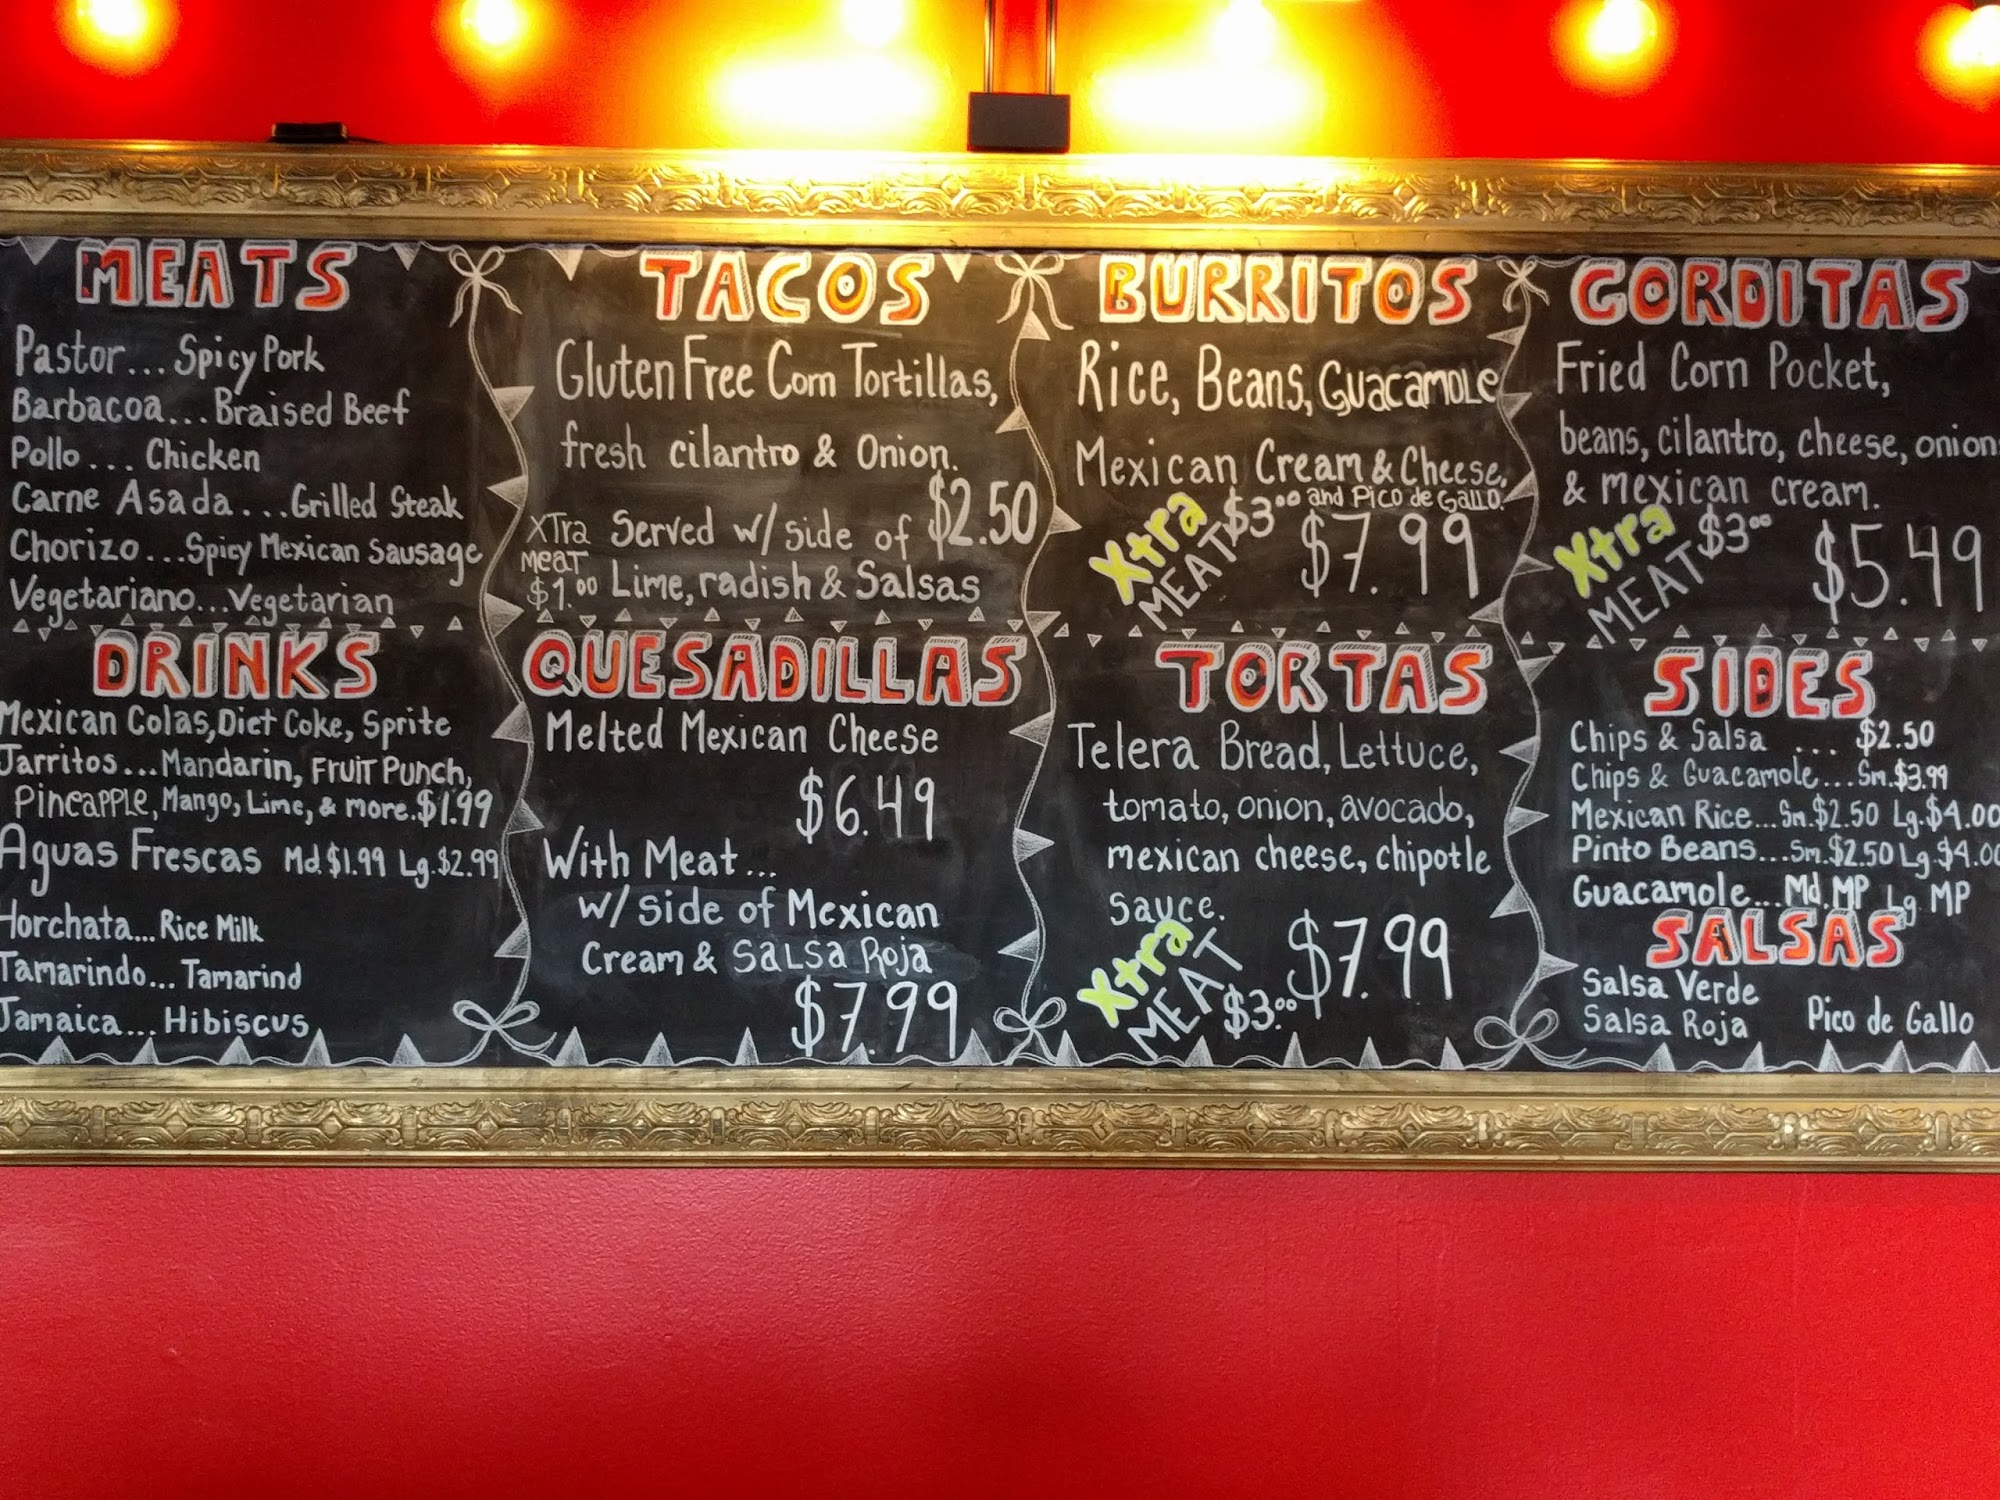 MEATS
Pastor... Spicy Pork
Barbacoa... Braised Beef
Pollo... Chicken
Carne Asada... Grilled Steak
Chorizo... Spicy Mexican Sausage
Vegetariano... Vegetarian
DRINKS
Mexican Colas, Diet Coke, Sprite
Jarritos... Mandarin, Fruit Punch,
Pineapple, Mango, Lime, & more. $1.99
Aguas Frescas Md. $1.99 Lg. $2.99
Horchata... Rice Milk
Tamarindo... Tamarind
Jamaica... Hibiscus
TACOS
Gluten Free Corn Tortillas,
fresh cilantro & Onion.
$2.50
Served w/ side of
Lime, radish & Salsas
XTra
meat
$1.00
QUESADILLAS
Melted Mexican Cheese
$6.49
With Meat...
w/ side of Mexican
Cream & Salsa Roja
$7.99
BURRITOS
Rice, Beans, Guacamole
Mexican Cream & Cheese,
and Pico de Gallo.
Xtra
MEAT $3.00
$7.99
TORTAS
Telera Bread, Lettuce,
tomato, onion, avocado,
mexican cheese, chipotle
sauce.
Xtra
MEAT $3.00
$7.99
GORDITAS
Fried Corn Pocket,
beans, cilantro, cheese, onions
& mexican cream.
Xtra
MEAT $3.00
$5.49
SIDES
Chips & Salsa ... $2.50
Chips & Guacamole... Sm. $3.99
Mexican Rice... Sm. $2.50 Lg. $4.00
Pinto Beans... Sm. $2.50 Lg. $4.00
Guacamole... Md. MP Lg MP
SALSAS
Salsa Verde
Salsa Roja
Pico de Gallo